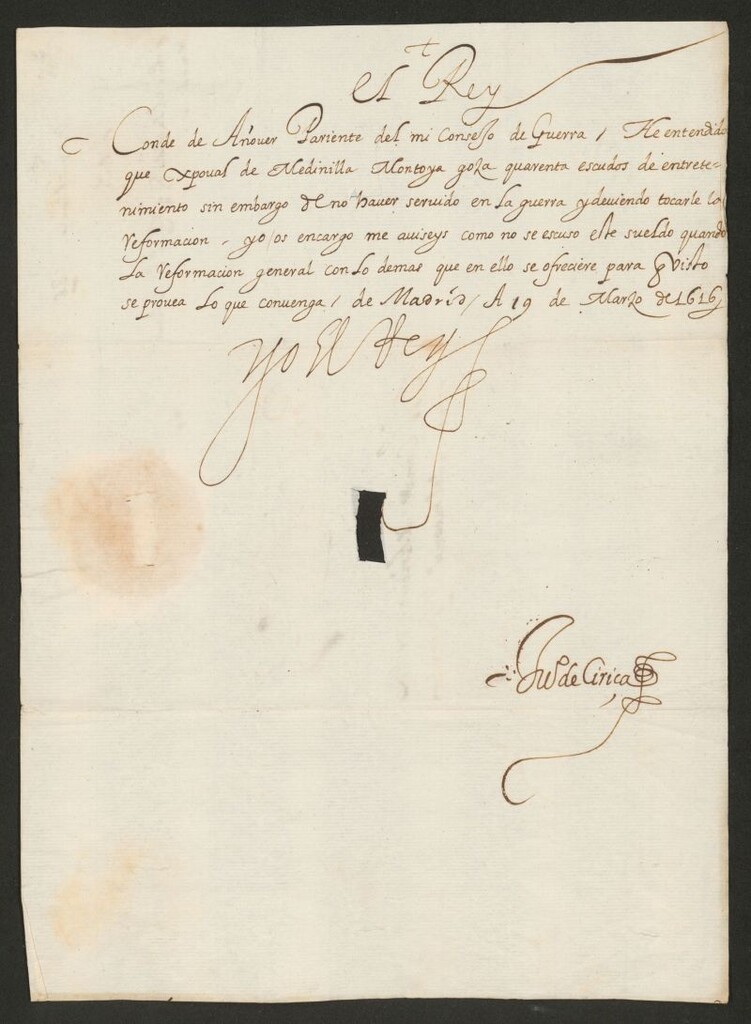 +
El Rey
Conde de Añover Pariente del mi Consejo de Guerra / He entendido
que Xpoual de Medinilla Montoya goza quarenta escudos de entrete-
nimiento sin embargo de no hauer seruido en la guerra y deuiendo tocarle la
reformacion, yo os encargo me auiseys como no se escuso este sueldo quando
la reformacion general con lo demas que en ello se ofreciere para q visto
se prouea lo que conuenga / de Madrid / A 19 de Marzo de 1616
yo el Rey
Ju.º de Ciriça